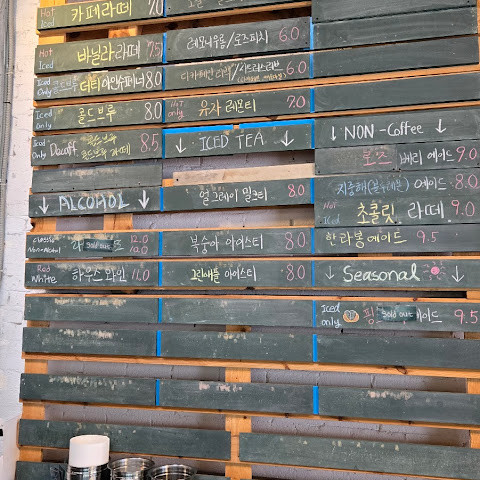 Hot Iced 카페라떼 7.0
Hot Iced 바닐라라떼 7.5
Iced Only 더티 아인슈페너 8.0
Iced Only 콜드브루 8.0
Iced Only Decaff 콜드브루 콜드브루 라떼 8.5
↓ ALCOHOL ↓
classic Non-Alcohol 라 Sold out 12.0 10.0
Red White 하우스 와인 11.0
레몬나무룸/로즈피치 6.0
디카페인 6.0
HOT ONLY 유자 레몬티 7.0
↓ ICED TEA ↓
얼그레이 밀크티 8.0
복숭아 아이스티 8.0
그린애플 아이스티 8.0
↓ NON-Coffee ↓
로즈 베리 에이드 9.0
에이드 8.0
Hot Iced 초콜릿 라떼 9.0
한라봉 에이드 9.5
↓ Seasonal ↓
Iced only 핑 Sold out 에이드 9.5